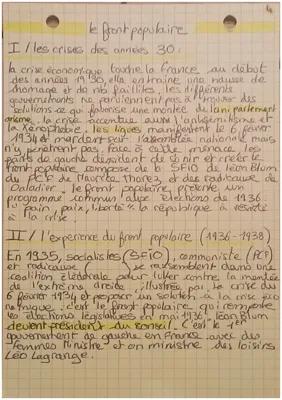 4
le front populaire
I / les crises des années 30 :
la crise économique touche la France au début
des années 1930, elle entraine une hausse de
chomage et de nb faillites, les différents
gouvernements ne parviennent pas à trouver des
solutions ce qui favorise une montée de l'anti parlement
arisme. la crise accentue aussi l'antisémitisme et
la xénophobie. les ligues manifestent le 6 février
1934 et marchent sur l'assemblée nationale mais
n'y pénètrent pas face à cette menace les
partis de gauche décident de s'unir et créer le
front populaire composé de la SFIO de Léon Blum
du PCF de Maurice Thorez, et des radicaux de
Daladier. le front populaire présente un
programme commun aux élections de 1936
"pain, paix, liberté" la république a résisté
à la crise.
II / l'expérience du front populaire (1936-1938)
En 1935, socialistes (SFIO), communiste (PCF)
et radicaux se rassemblent dans une
coalition électorale pour lutter contre la montée
de l'extrême droite, illustrée par la crise du
6 février 1934 et proposer un solution à la crise éco
nomique. c'est le front populaire, qui remporte
les élections législatives en mai 1936, Léon Blum
devient président du conseil. C'est le 1er
gouvernement de gauche en France avec des
femmes ministre et un ministre des loisirs
Léo Lagrange.